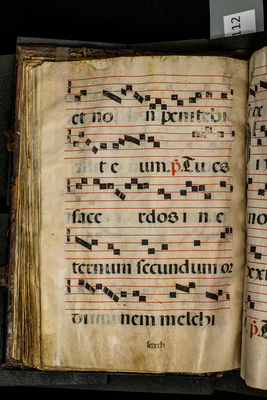 112
et no n penitebi
te um. ꝟ. Tu es
sace rdos i n e
ternum secundum or
di nem melchi